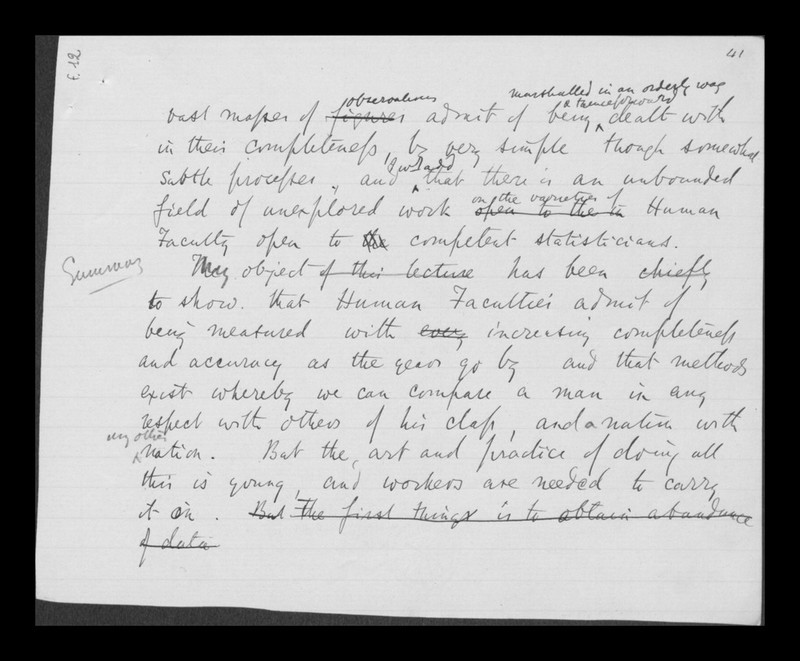 41
f. 12
observations marshalled in an orderly way
& thenceforward
vast masses of figures admit of being dealt with
in their completeness, by very simple though somewhat
I would add
subtle processes, and that there is an unbounded
on the varieties of
field of unexplored work open to the in Human
Faculty open to the competent statisticians.
Summary
My object of this lecture has been chiefly
to show that Human Faculties admit of
being measured with every increasing completeness
and accuracy as the years go by and that methods
exist whereby we can compare a man in any
respect with others of his class, and a nation with
any other
nation. But the art and practice of doing all
this is young, and workers are needed to carry
it on. But the first things is to obtain abundance
of data